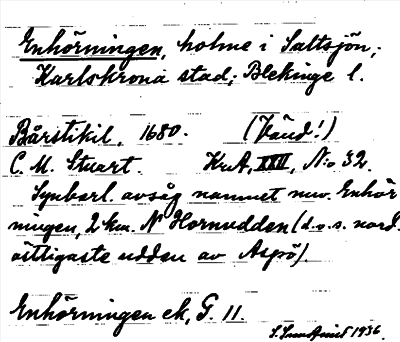 Enhörningen, holme i Saltsjön;
Karlskrona stad; Blekinge l.
Bårstikil. 1680. (Vänd!)
C. M. Stuart. KrA, XXII, N:o 32.
Synbarl. avsåg namnet nuv. Enhör
ningen, 2 km. N Hornudden (d.v.s. nord.
östligaste udden av Aspö).
Enhörningen ek, G. 11.
1936.